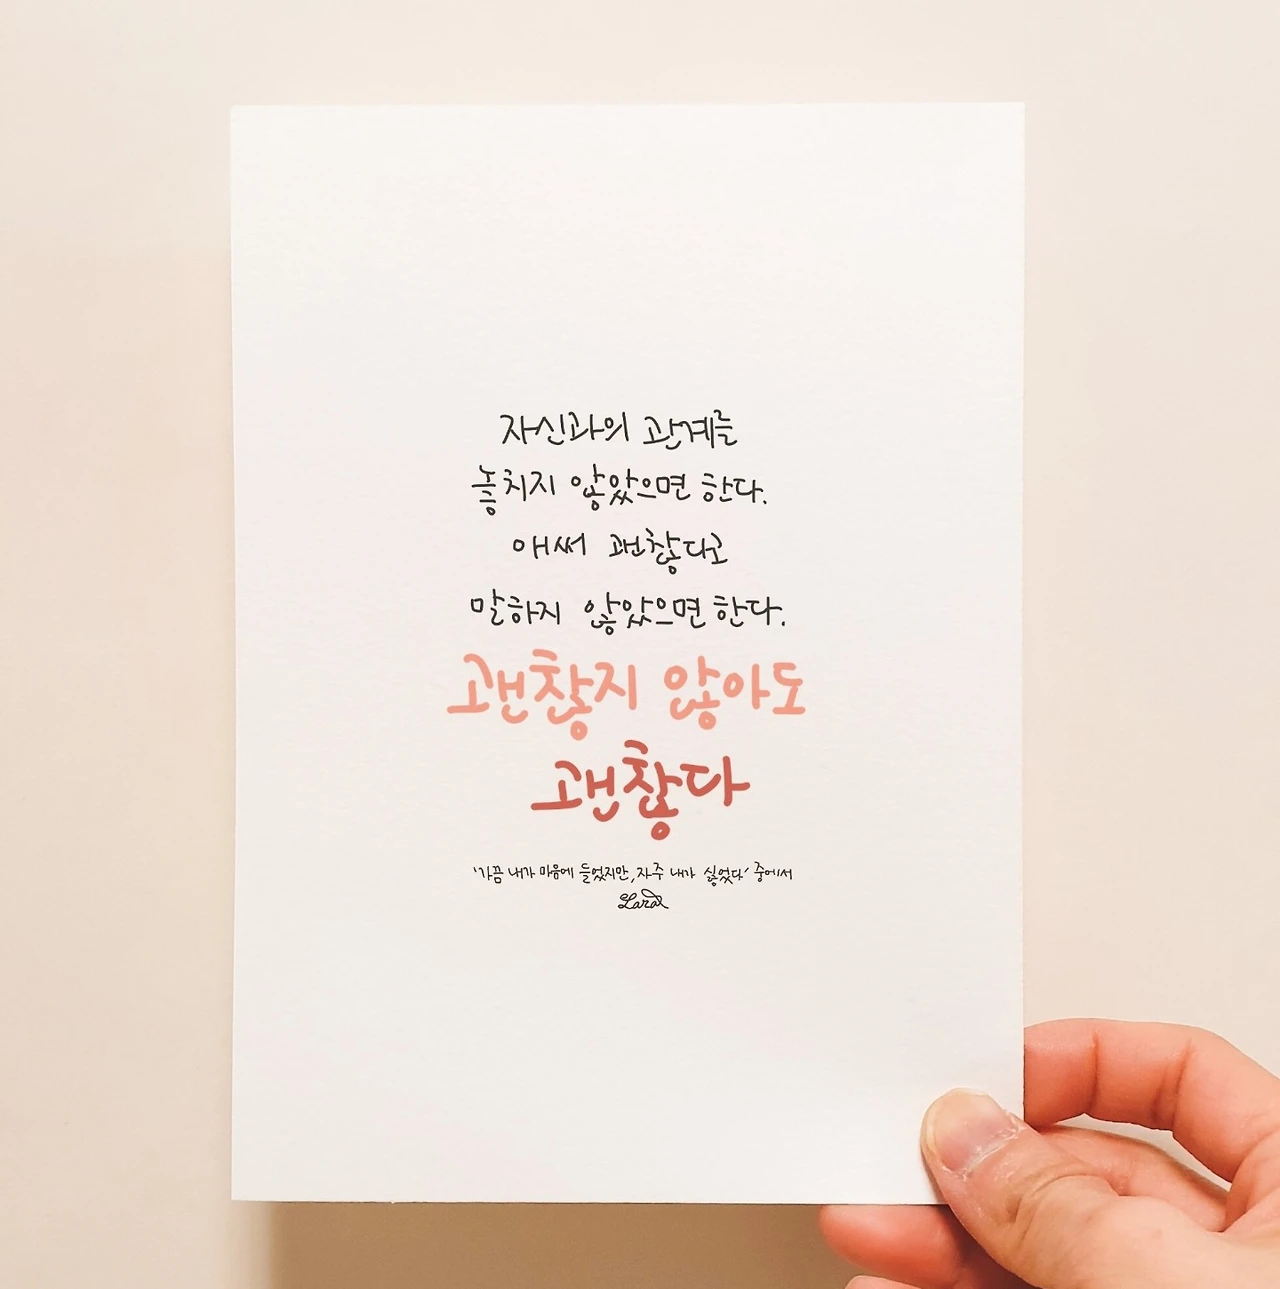 자신과의 관계를
놓치지 않았으면 한다.
애써 괜찮다고
말하지 않았으면 한다.
괜찮지 않아도
괜찮다
'가끔 내가 마음에 들었지만, 자주 내가 싫었다' 중에서
Lara